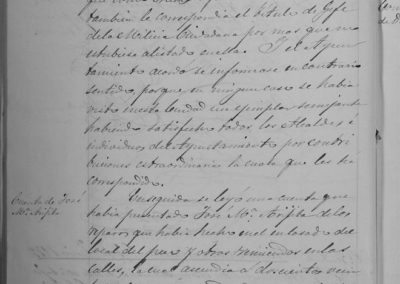 tambien le correspondia el titulo de Gefe
de la Milicia Ciudadana por mas que no
estubiese alistado en ella. Y el Ayun
tamiento acordó se informase en contrario
sentido, porque en ningun caso se habia
visto en esta Ciudad un ejemplar semejante
habiendo satisfecho todos los Alcaldes é
individuos del Ayuntamiento por contri
buciones extraordinarias la cuota que les ha
correspondido.
Cuenta de José
Mª Arijita
En seguida se leyó una cuenta que
habia presentado José Mª Arijita de los
reparos que habia hecho en el enlosado del
local del peso y otros remiendos en las
calles, la cual ascendia a doscientos vein